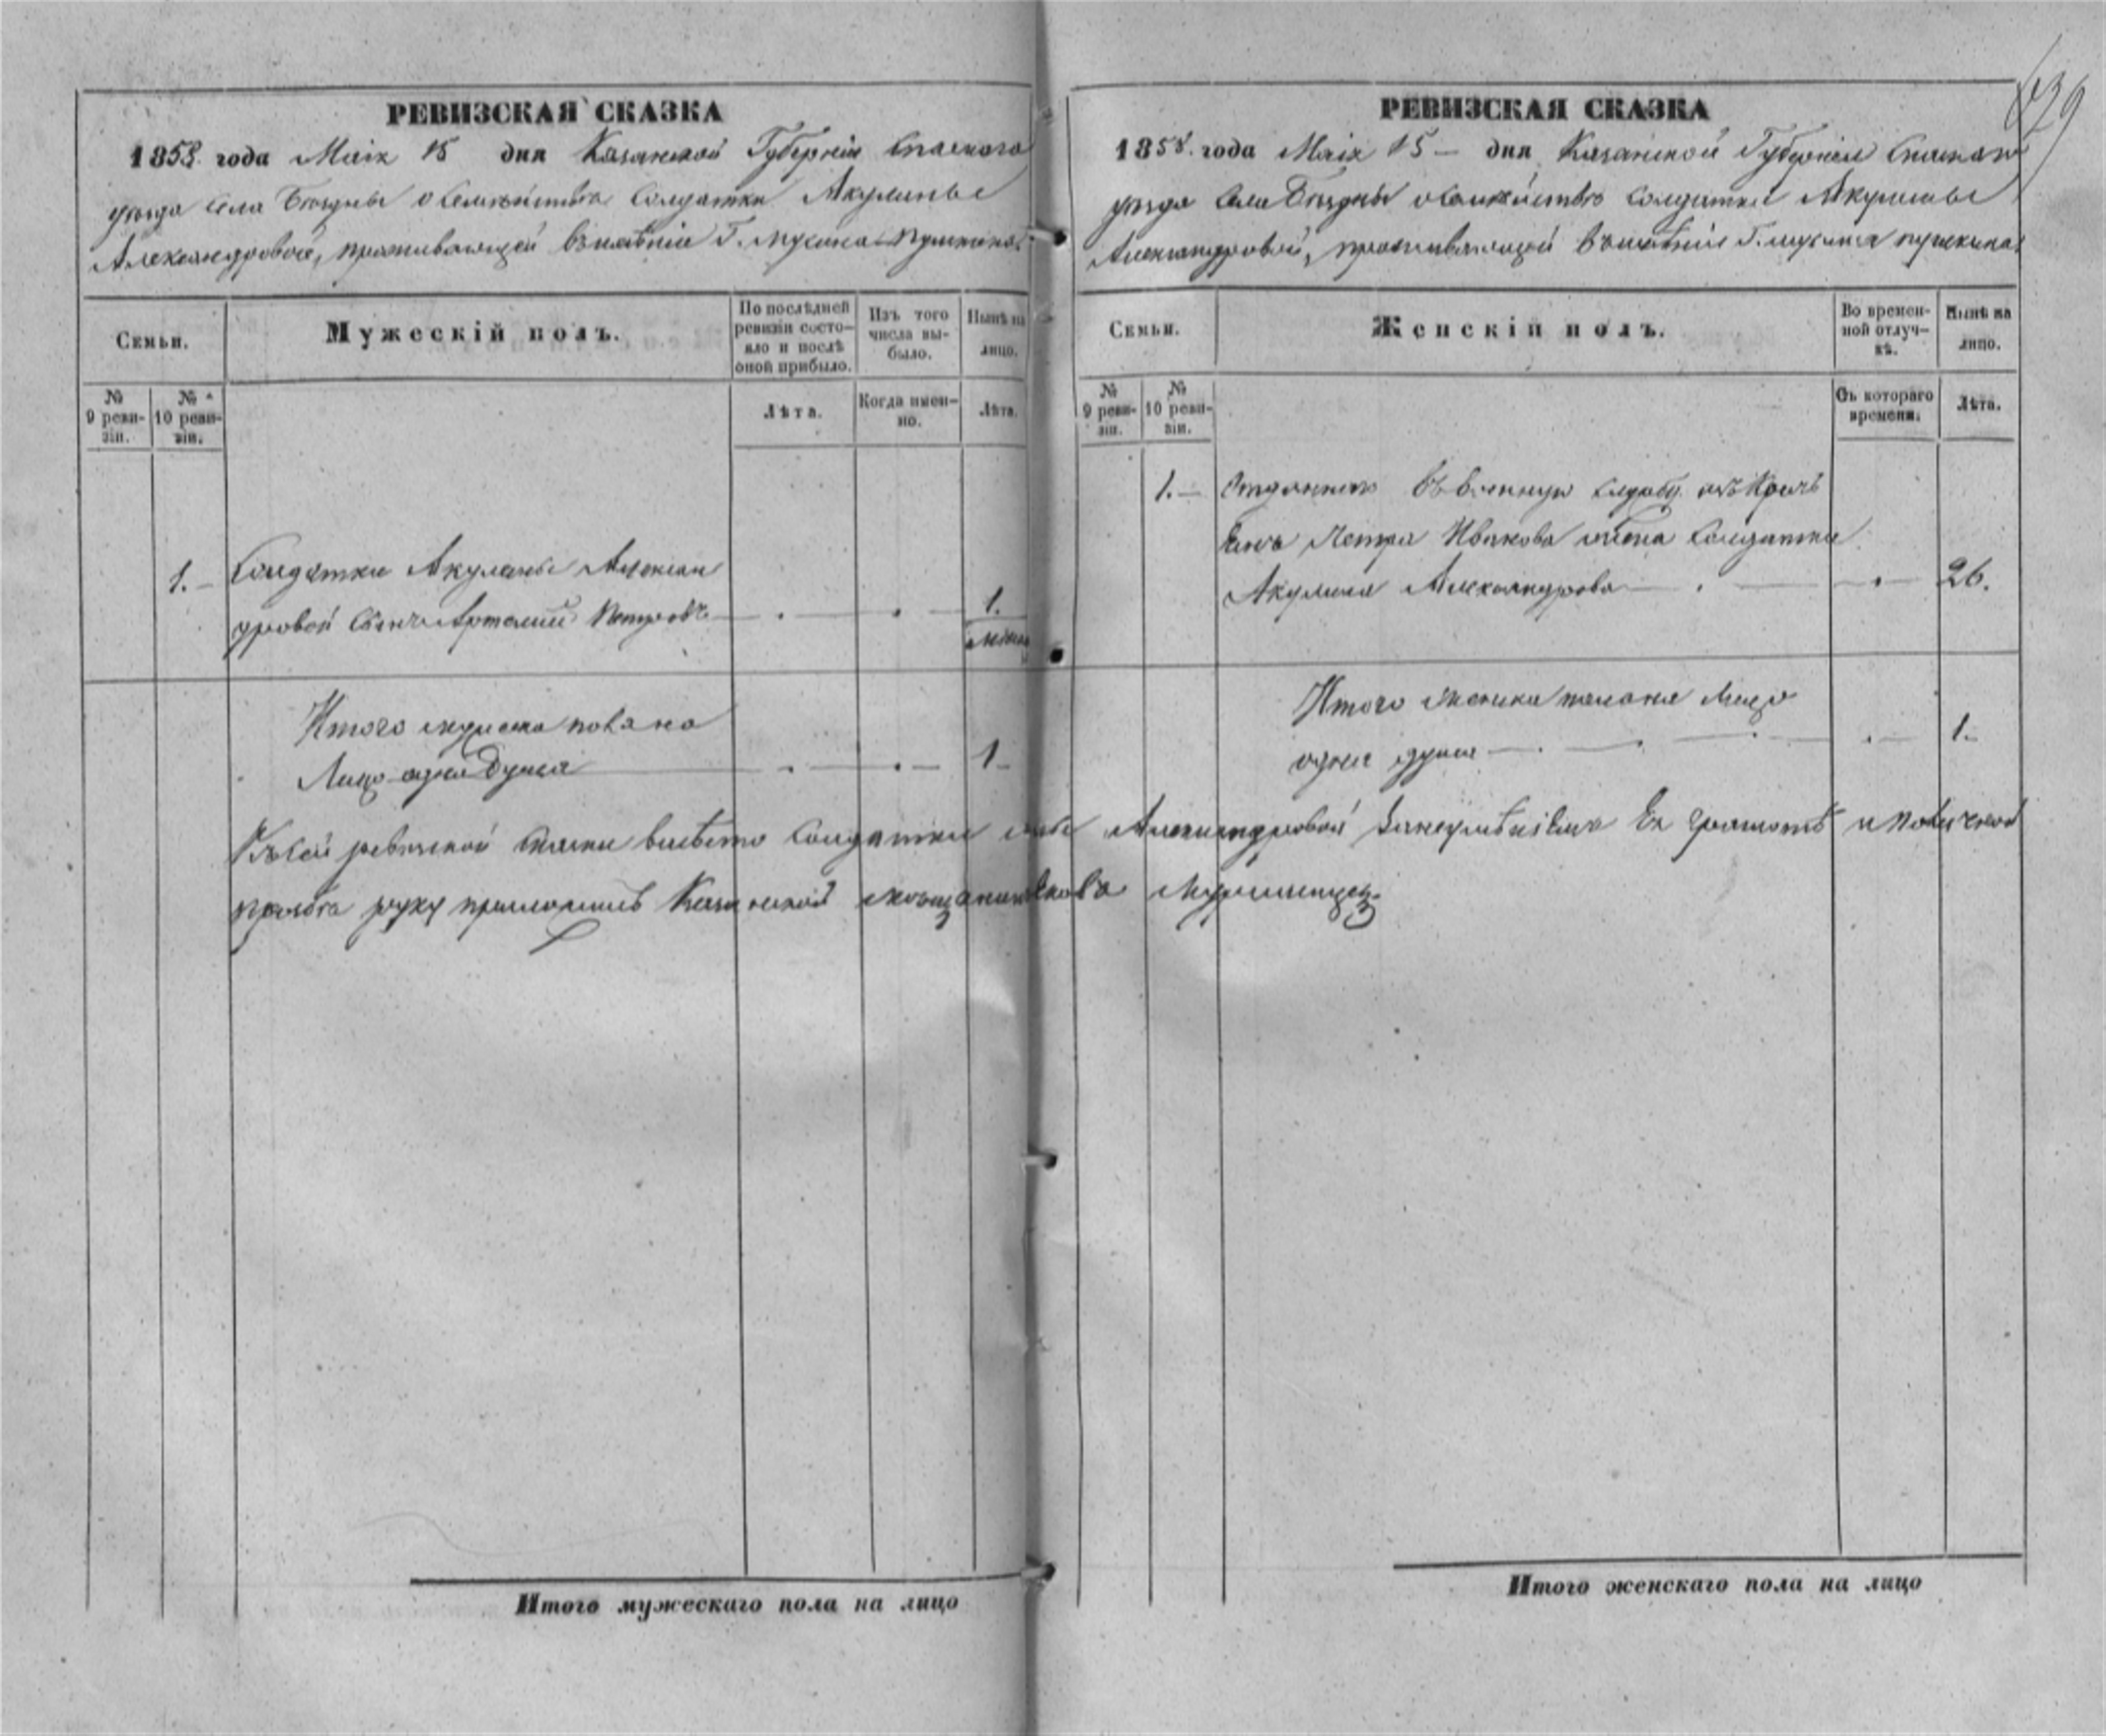 РЕВИЗСКАЯ СКАЗКА
1858 года Маія 15 дня Казанской Губерніи Спаскаго
уѣзда села Бездны о семѣйствѣ солдатки Акулины
Александровой, проживающей в имѣніи Г. Мусина-Пушкина
Семьи.
Мужескій полъ.
По послѣдней ревизіи состояло и послѣ оной прибыло.
Изъ того числа выбыло.
Нынѣ на лицо.
№ 9 ревизіи.
№ 10 ревизіи.
Лѣта.
Когда именно.
Лѣта.
1.
Солдатки Акулины Алексан
дровой сынъ Артемій Петровъ
1.
Итого мужеска пола на
Лицо одна Душа
1
Къ сей ревизской сказки вмѣсто солдатки Александровой Ея и личной
прозьбѣ руку приложилъ Казанской
Итого мужескаго пола на лицо
639
РЕВИЗСКАЯ СКАЗКА
1858. года Маія 15 дня Казанской Губерніи Спаскаго
уѣзда села Бездны о семѣйствѣ солдатки Акулины
Александровой, проживающей въ имѣніи Г. Мусина Пушкина
Семьи.
Женскій полъ.
Во временной отлучкѣ.
Нынѣ на лицо.
№ 9 ревизіи.
№ 10 ревизіи.
Съ котораго времени.
Лѣта.
1.
Отданнаго въ военную службу изъ
Петра Иванова жена солдатка
Акулина Александрова
26.
Итого женска пола на Лицо
одна душа
1.
Итого женскаго пола на лицо